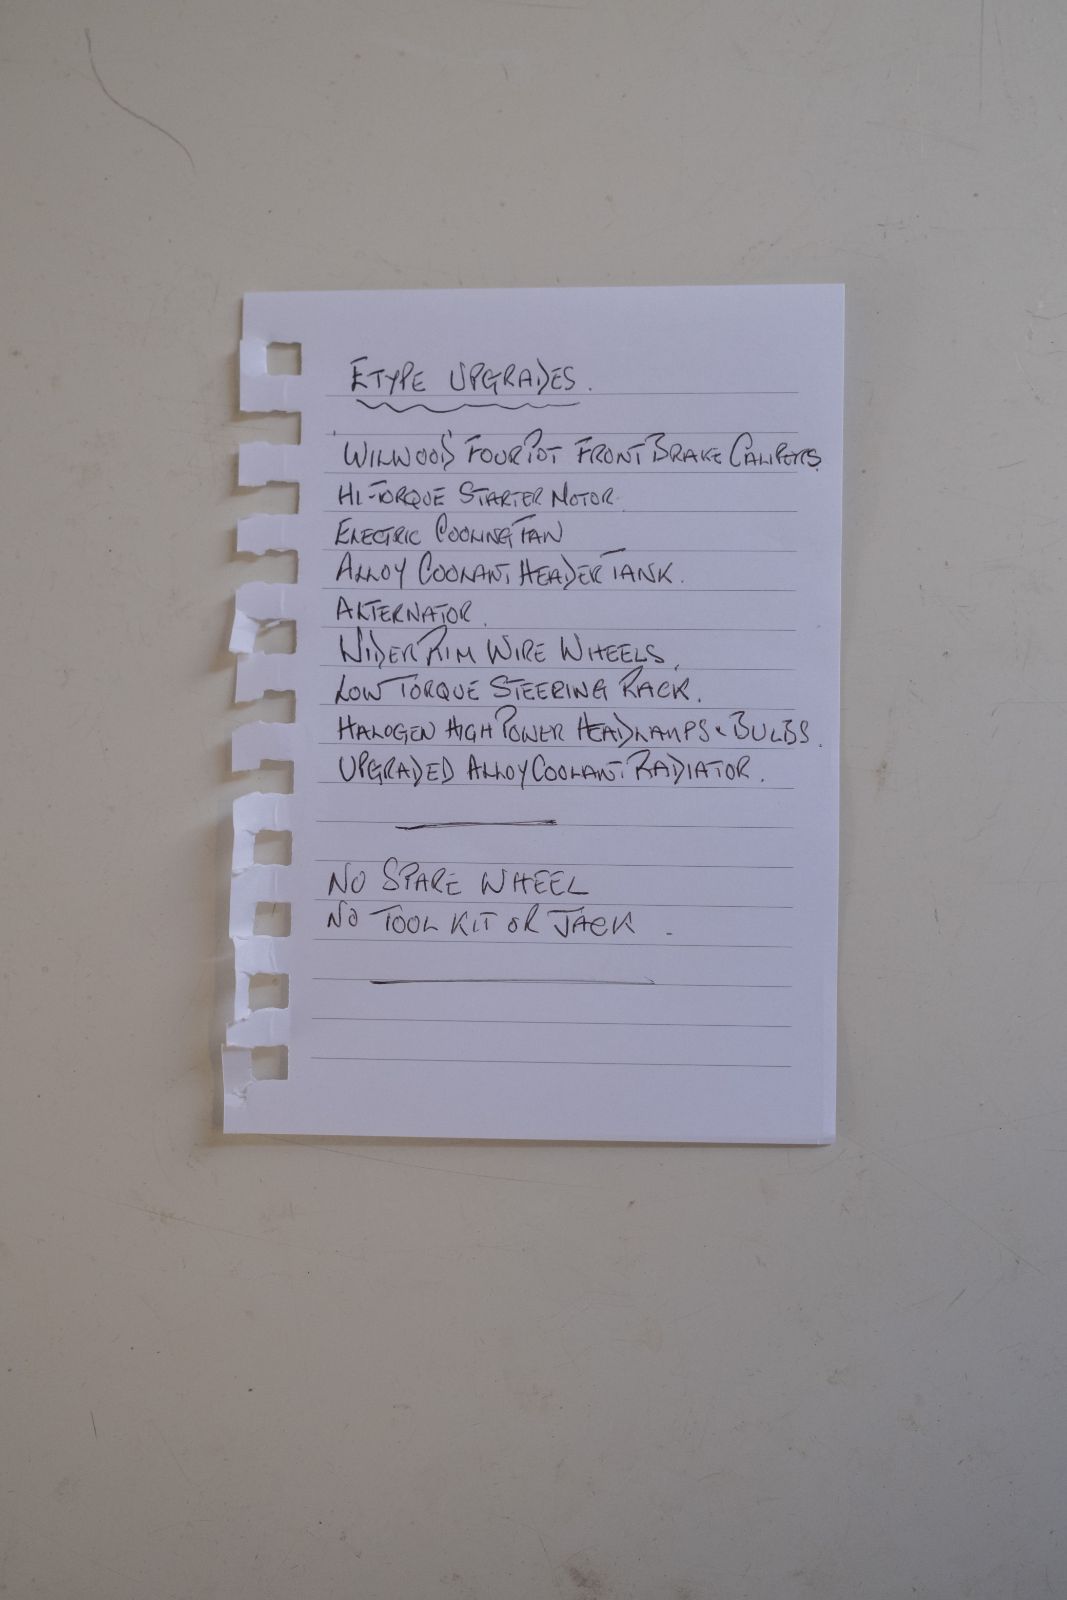 ETYPE UPGRADES.
'WILWOOD' FOUR POT FRONT BRAKE CALIPERS.
HI-TORQUE STARTER MOTOR.
ELECTRIC COOLING FAN
ALLOY COOLANT HEADER TANK.
ALTERNATOR.
WIDER RIM WIRE WHEELS.
LOW TORQUE STEERING RACK.
HALOGEN HIGH POWER HEADLAMPS & BULBS.
UPGRADED ALLOY COOLANT RADIATOR.
NO SPARE WHEEL
NO TOOL KIT OR JACK.